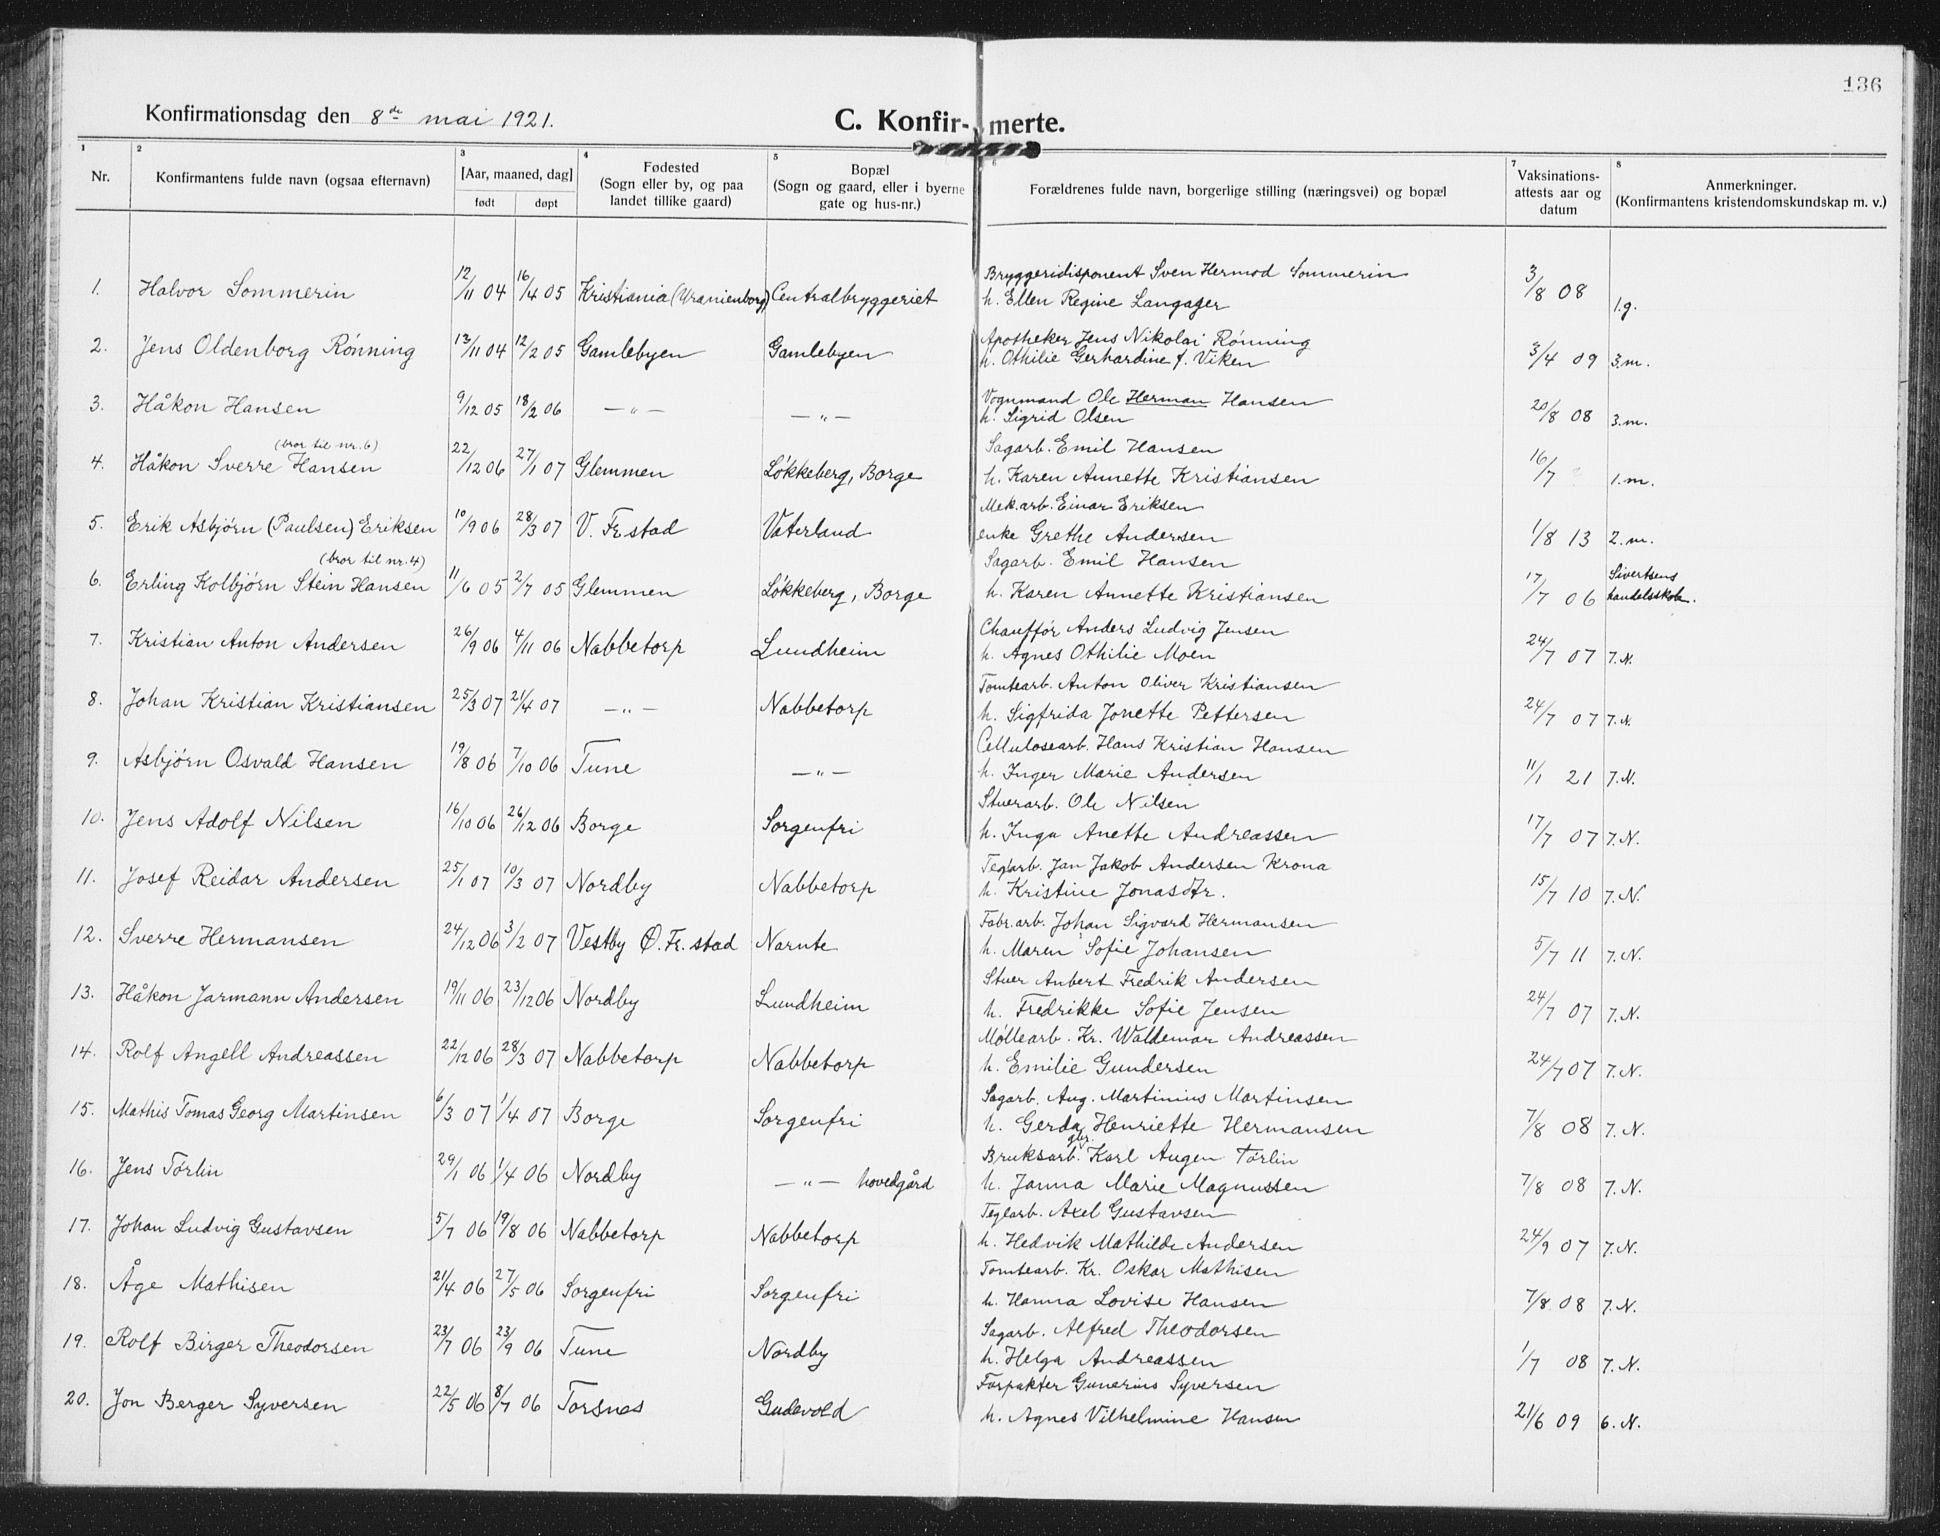 136
Konfirmationsdag den 8de mai 1921.
C. Konfir- merte.
1 2 3 4 5 6 7 8
Nr. Konfirmantens fulde navn (ogsaa efternavn) [Aar, maaned, dag] født døpt Fødested (Sogn eller by, og paa landet tillike gaard) Bopæl (Sogn og gaard, eller i byerne gate og hus-nr.) Forældrenes fulde navn, borgerlige stilling (næringsvei) og bopæl Vaksinations-attests aar og datum Anmerkninger. (Konfirmantens kristendomskundskap m. v.)
Bryggeridisponent Sven Hermod Sommerin
1. Halvor Sommerin 12/11 04 16/4 05 Kristiania (Uranienborg) Centralbryggeriet h. Ellen Regine Langager 3/8 08 1.g.
Apotheker Jens Nikolai Rönning
2. Jens Oldenborg Rönning 13/11 04 12/2 05 Gamlebyen Gamlebyen h. Othilie Gerhardine f. Viken 3/4 09 3.m.
Vognmand Ole Herman Hansen
3. Håkon Hansen 9/12 05 18/2 06 —"— —"— h. Sigrid Olsen 20/8 08 3.m.
(bror til nr. 6) Sagarb. Emil Hansen
4. Håkon Sverre Hansen 22/12 06 27/1 07 Glemmen Løkkeberg, Borge h. Karen Annette Kristiansen 16/7 1.m.
Mek.arb. Einar Eriksen
5. Erik Asbjørn (Paulsen) Eriksen 10/9 06 28/3 07 V. Fr.stad Vaterland enke Grethe Andersen 1/8 13 2.m.
(bror til nr. 4) Sagarb. Emil Hansen
6. Erling Kolbjörn Stein Hansen 11/6 05 2/7 05 Glemmen Løkkeberg, Borge h. Karen Annette Kristiansen 17/7 06 Sivertsens handelsskole.
Chauffør Anders Ludvig Jensen
7. Kristian Anton Andersen 26/9 06 4/11 06 Nabbetorp Lundheim h. Agnes Othilie Moen 24/7 07 7.N.
Tomtearb. Anton Oliver Kristiansen
8. Johan Kristian Kristiansen 25/3 07 21/4 07 —"— Nabbetorp h. Sigfrida Jonette Pettersen 24/7 07 7.N.
Cellulosearb. Hans Kristian Hansen
9. Asbjørn Osvald Hansen 19/8 06 7/10 06 Tune —"— h. Inger Marie Andersen 11/1 21 7.N.
Stuerarb. Ole Nilsen
10. Jens Adolf Nilsen 16/10 06 26/12 06 Borge Sorgenfri h. Inga Anette Andreassen 17/7 07 7.N.
Teglarb. Jan Jakob Andersen Krona
11. Josef Reidar Andersen 25/1 07 10/3 07 Nordby Nabbetorp h. Kristine Jonasdtr. 15/7 10 7.N.
Fabr.arb. Johan Sigvard Hermansen
12. Sverre Hermansen 24/12 06 3/2 07 Vestby Ø. Fr.stad Narnte h. Maren Sofie Johansen 5/7 11 7.N.
Stuer Anbert Fredrik Andersen
13. Håkon Jarmann Andersen 19/11 06 23/12 06 Nordby Lundheim h. Fredrikke Sofie Jensen 24/7 07 7.N.
Møllearb. Kr. Waldemar Andreassen
14. Rolf Angell Andreassen 22/12 06 28/3 07 Nabbetorp Nabbetorp h. Emilie Gundersen 24/7 07 7.N.
Sagarb. Aug. Martinius Martinsen
15. Mathis Tomas Georg Martinsen 6/3 07 1/4 07 Borge Sorgenfri h. Gerda Henriette Hermansen 7/8 08 7.N.
Bruksarb. Karl Augen Törlin
16. Jens Törlin 29/1 06 1/4 06 Nordby —"— hovedgård h. Janna Marie Magnussen 7/8 08 7.N.
Teglarb. Axel Gustavsen
17. Johan Ludvig Gustavsen 5/7 06 19/8 06 Nabbetorp Nabbetorp h. Hedvik Mathilde Andersen 24/9 07 7.N.
Tomtearb. Kr. Oskar Mathisen
18. Åge Mathisen 21/4 06 27/5 06 Sorgenfri Sorgenfri h. Hanna Lovise Hansen 7/8 08 7.N.
Sagarb. Alfred Theodorsen
19. Rolf Birger Theodorsen 23/7 06 23/9 06 Tune Nordby h. Helga Andreassen 1/7 08 7.N.
Forpakter Gunerius Syversen
20. Jon Berger Syversen 22/5 06 8/7 06 Torsnes Gudevold h. Agnes Vilhelmine Hansen 21/6 09 6.N.